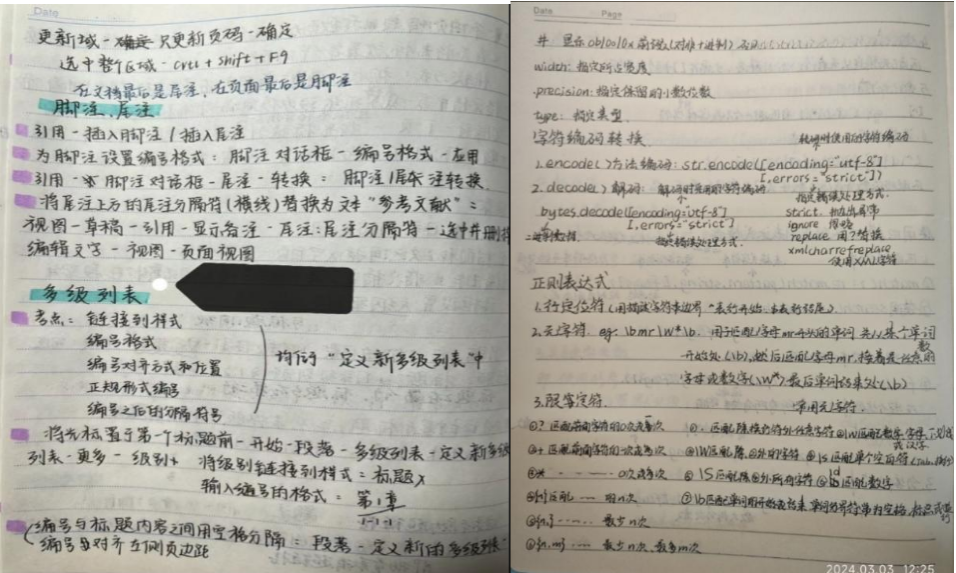 Date
更新域-确定 只更新页码-确定
选中整个区域-crtl+shift+F9
在文档最后是尾注,在页面最后是脚注
脚注、尾注
引用-插入脚注/插入尾注
为脚注设置编号格式:脚注对话框-编号格式-应用
引用-脚注对话框-尾注-转换:脚注/尾注转换
将尾注上方的尾注分隔符(横线)替换为文本"参考文献":
视图-草稿-引用-显示备注-尾注:尾注分隔符-选中并删
编辑文字-视图-页面视图
多级列表
考点:链接到样式
编号格式
编号对齐方式和位置
正规形式编号
编号之后的分隔符号
均位于"定义新多级列表"中
将光标置于第一个标题前-开始-段落-多级列表-定义新多级
列表-更多-级别 将级别链接到样式=标题x
输入编号的格式=第1章
1.1.1
编号与标题内容之间用空格分隔:段落-定义新的多级列表
编号对齐左侧页边距
Date Page
#: 显示0b/0o/0x前缀
width:指定所占宽度
.precision:指定保留的小数位数
type:指定类型
字符编码转换
转码时使用的字符编码
1.encode()方法编码:str.encode([encoding="utf-8"]
[,errors="strict"])
2.decode()解码 解码时使用的字符编码
指定错误处理方式.
bytes.decode([encoding="utf-8"]
[,errors="strict"])
指定错误处理方式.
strict.
ignore 忽略
replace 用?替换
xmlcharrefreplace
使用xml字符
正则表达式
1.行定位符(用来描述字符串边界 ^表行开始,$表行结尾)
2.元字符. eg \bmr\w*\b. 用于匹配以字母mr开头的单词 先从某个单词
开始处(\b),然后匹配字母mr,接着是任意的
字母或数字(\w*)最后单词结束处(\b)
3.限定符 常用元字符
①? 匹配前面字符的0次或1次
②+ 匹配前面字符的1次或多次
③* 0次或多次
④{n}匹配 n次
⑤{n,} 最少n次
⑥{n,m} 最少n次,最多m次
2024.03.03 12:25